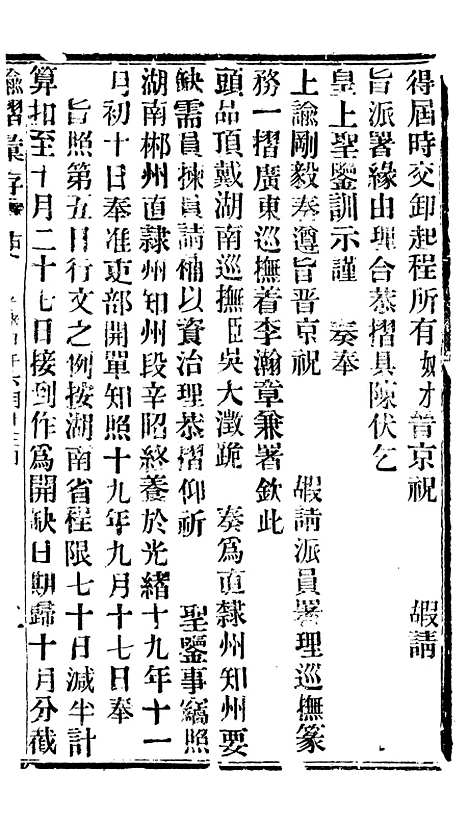 得屆時交卸起程所有奴才晉京祝　嘏請
旨派署緣由理合恭摺具陳伏乞
皇上聖鑒訓示謹　奏奉
上諭剛毅奏遵旨晉京祝　嘏請派員署理巡撫篆
務一摺廣東巡撫着李瀚章兼署欽此
頭品頂戴湖南巡撫臣吳大澂跪　奏爲直隸州知州要
缺需員揀員請補以資治理恭摺仰祈　聖鑒事竊照
湖南郴州直隸州知州段辛昭終養於光緒十九年十一
月初十日奉准吏部開單知照十九年九月十七日奉
旨照第五日行文之例按湖南省程限七十日減半計
算扣至十月二十七日接到作爲開缺日期歸十月分截
諭摺彙存